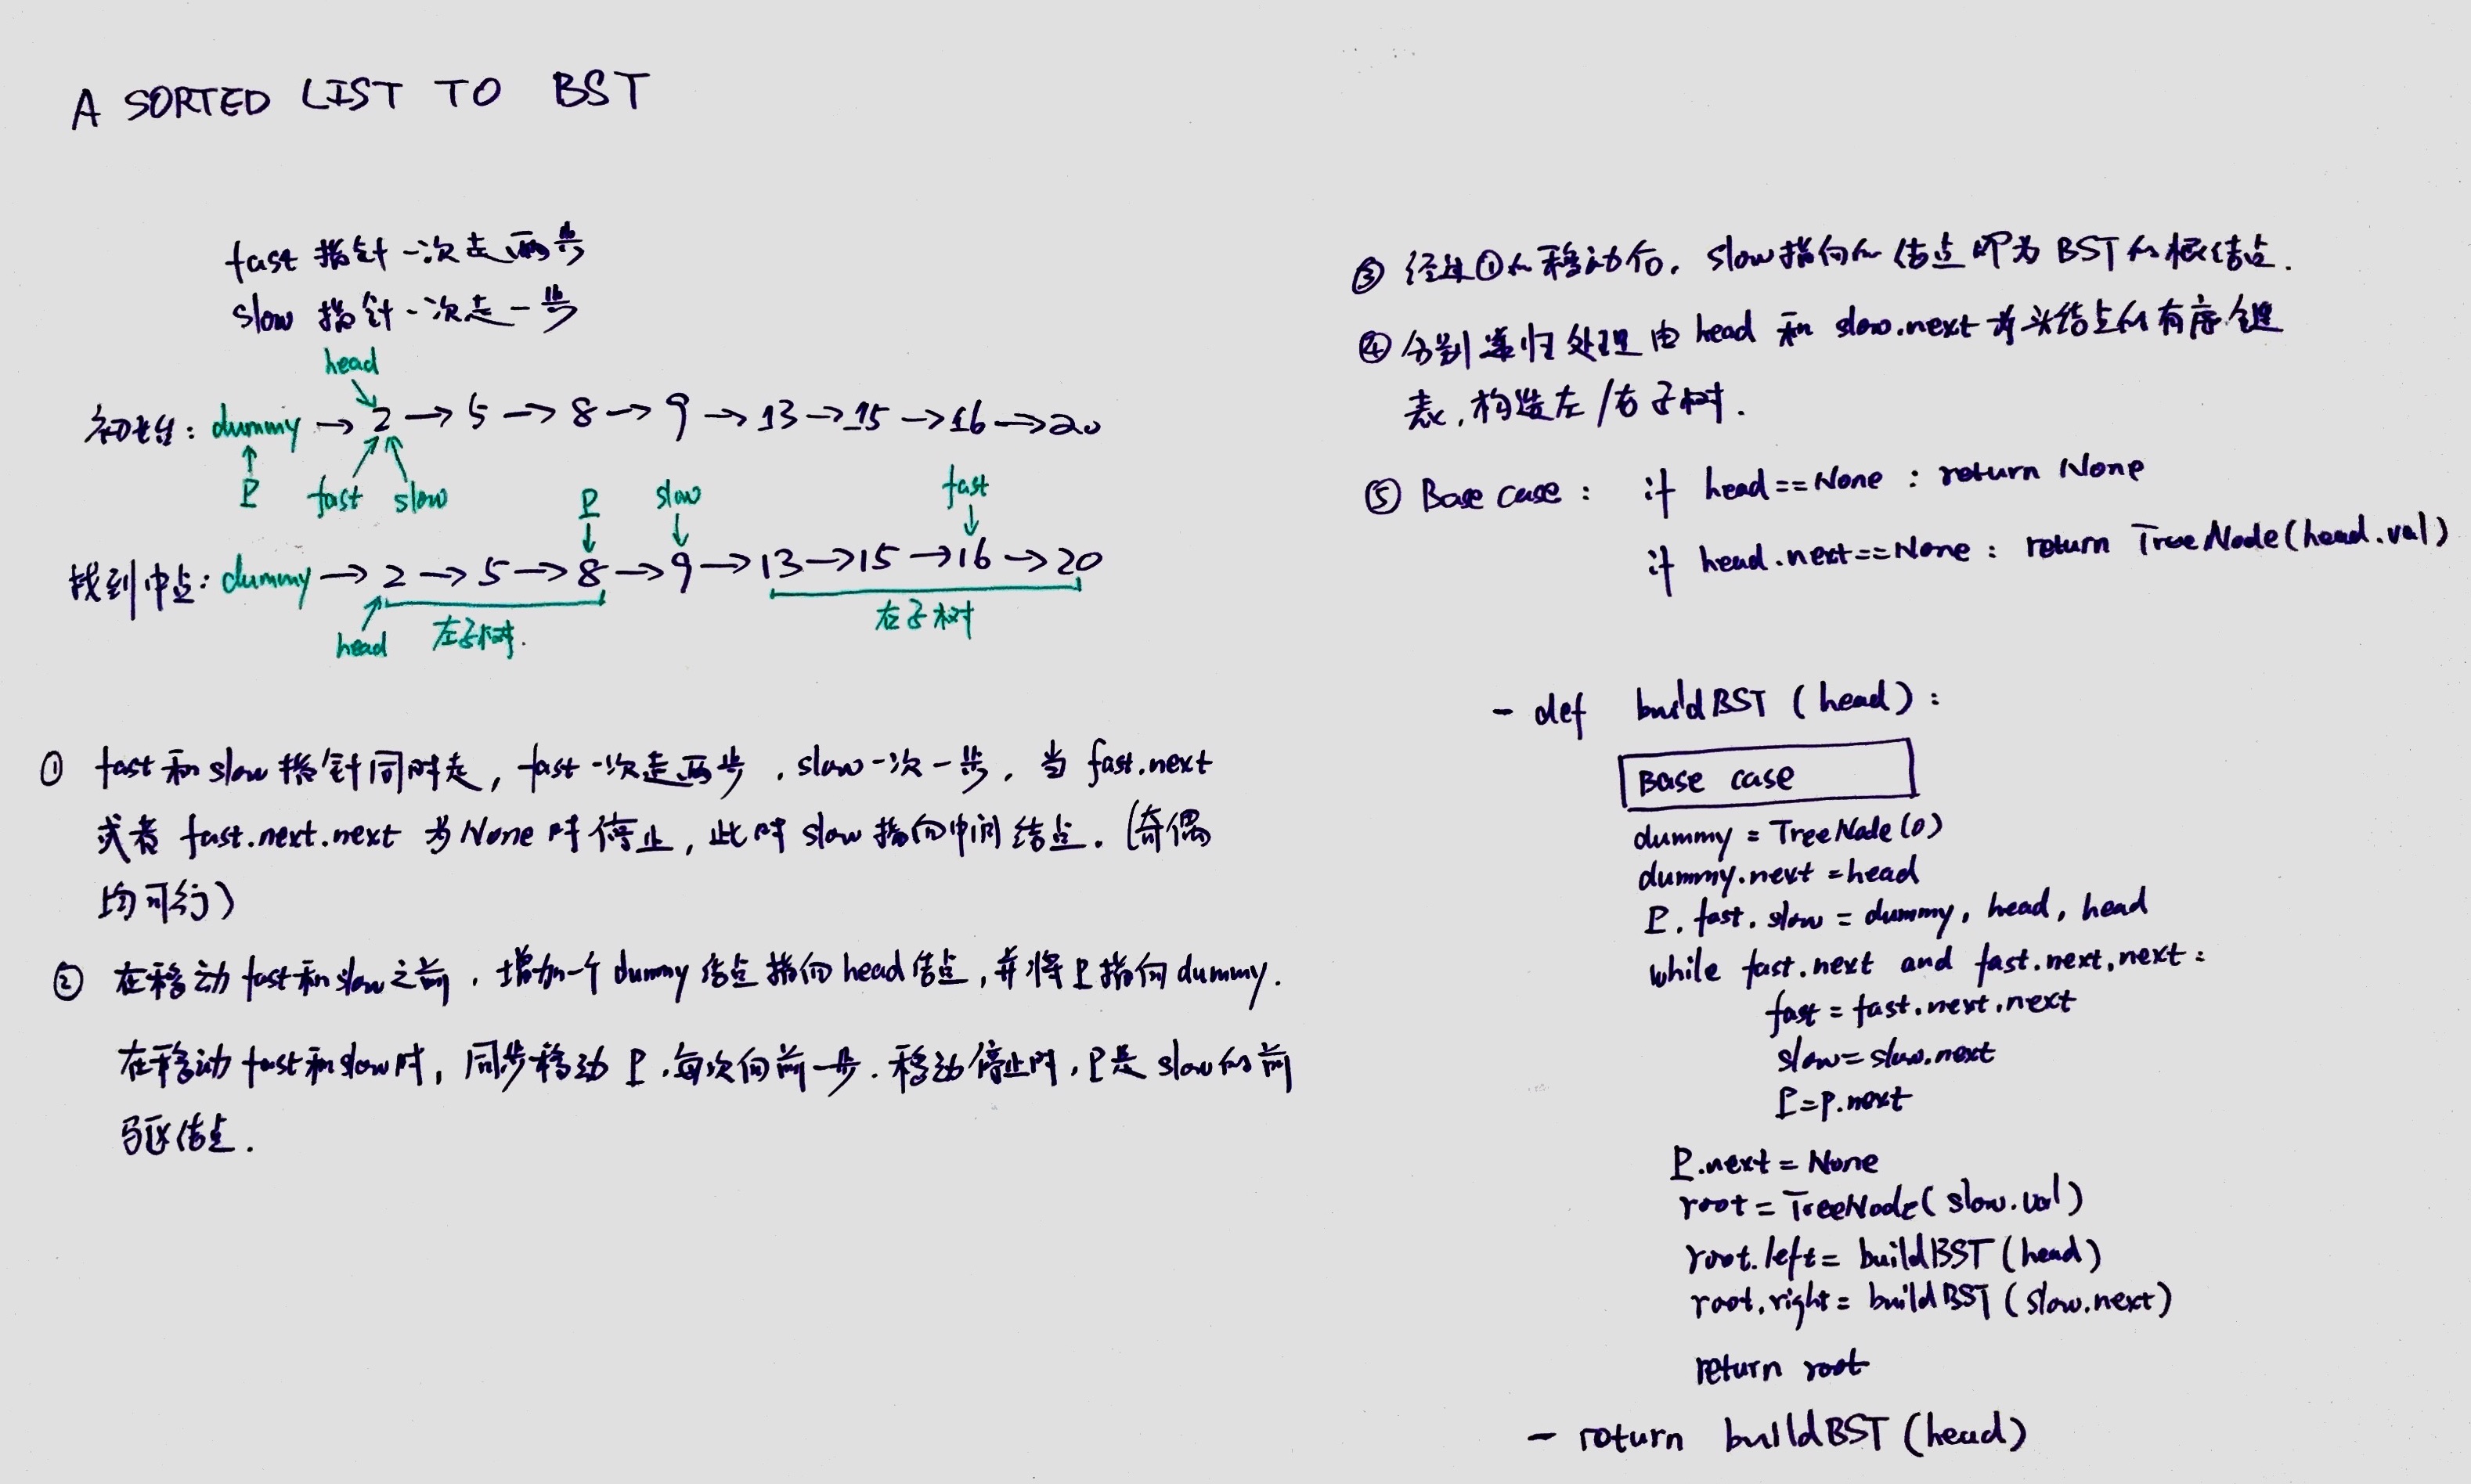 A SORTED LIST TO BST
fast 指针一次走两步
slow 指针一次走一步
head
初始: dummy → 2 → 5 → 8 → 9 → 13 → 15 → 16 → 20
P fast slow
P slow fast
找到中点: dummy → 2 → 5 → 8 → 9 → 13 → 15 → 16 → 20
head 左子树. 右子树
① fast 和 slow 指针同时走, fast 一次走两步, slow 一次一步, 当 fast.next
或者 fast.next.next 为 None 时停止, 此时 slow 指向中间结点. (奇偶
均可行)
② 在移动 fast 和 slow 之前, 增加一个 dummy 结点指向 head 结点, 并将 P 指向 dummy.
在移动 fast 和 slow 时, 同步移动 P, 每次向前一步. 移动停止时, P 是 slow 的前
驱结点.
③ 经过①的移动后, slow 指向的结点即为 BST 的根结点.
④ 分别递归处理由 head 和 slow.next 为头结点的有序链
表, 构造左/右子树.
⑤ Base case: if head==None : return None
if head.next==None : return TreeNode(head.val)
- def buildBST (head) :
Base case
dummy = TreeNode(0)
dummy.next = head
P, fast, slow = dummy, head, head
while fast.next and fast.next.next :
fast = fast.next.next
slow = slow.next
P = p.next
P.next = None
root = TreeNode( slow.val)
root.left = buildBST (head)
root.right = buildBST (slow.next)
return root
- return buildBST (head)